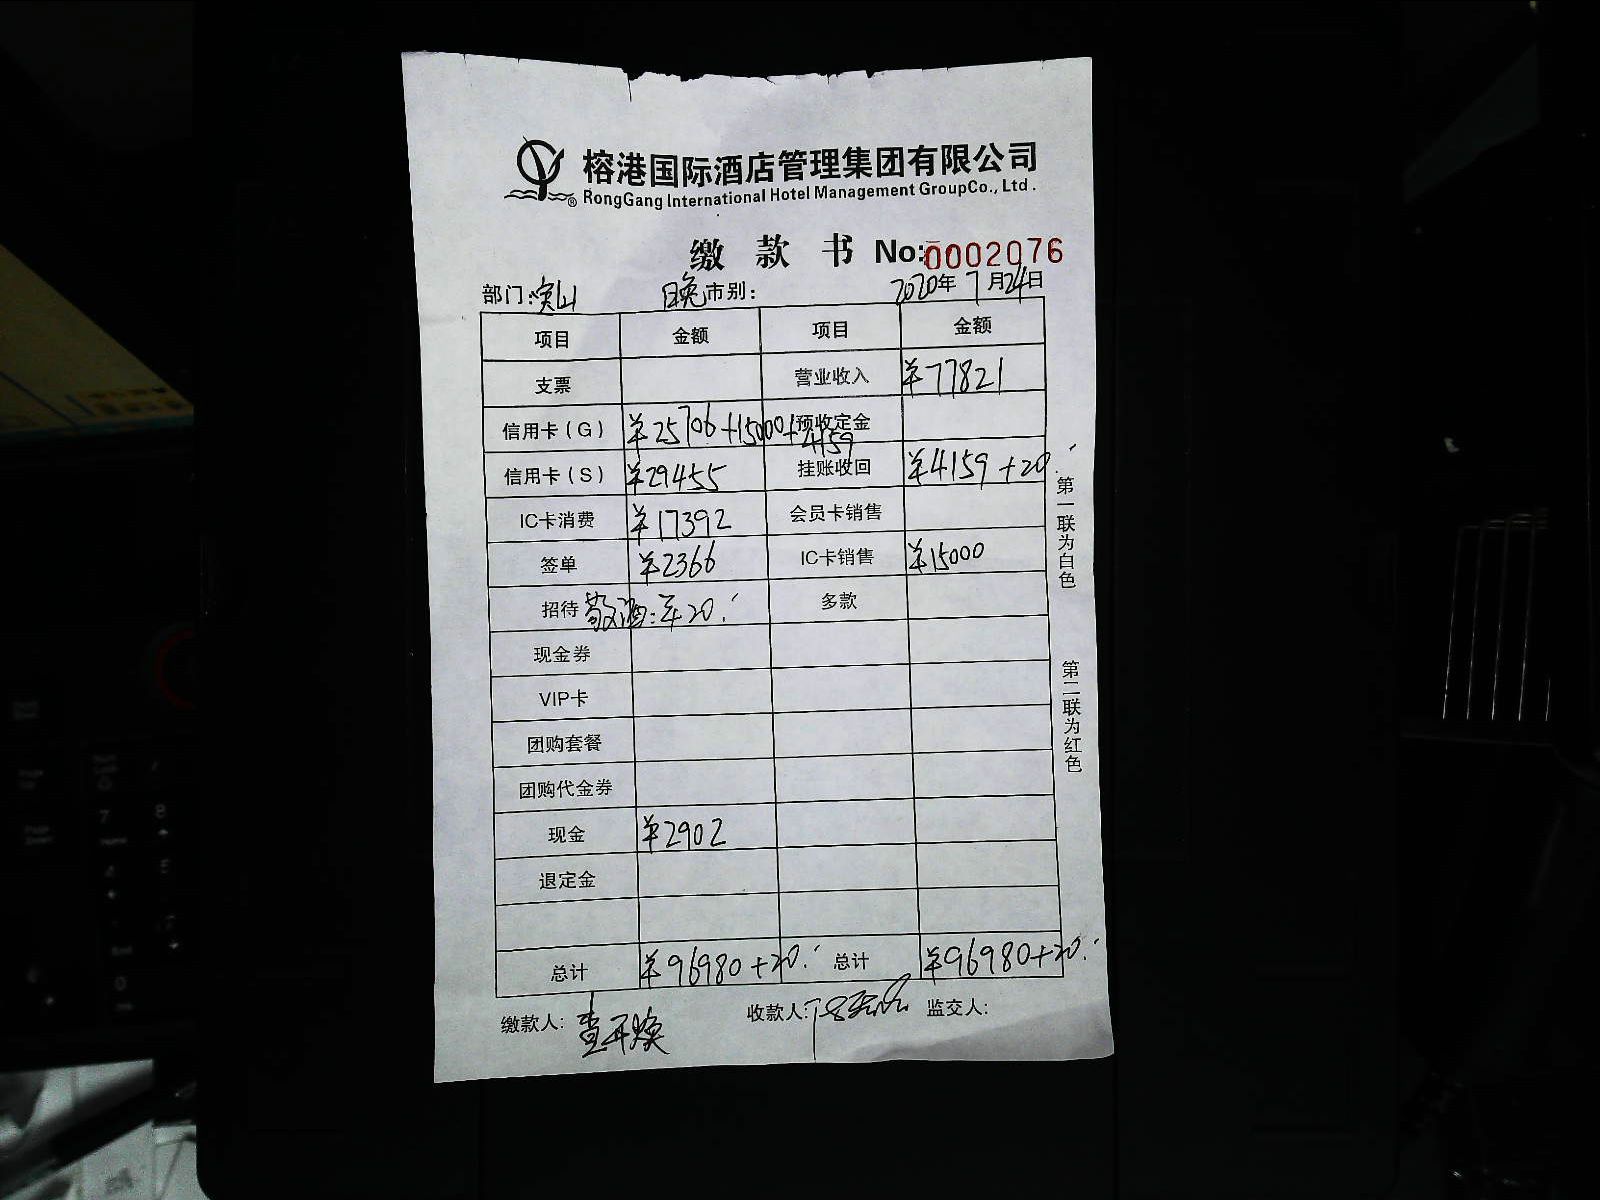 榕港国际酒店管理集团有限公司
RongGang International Hotel Management GroupCo., Ltd.
缴 款 书 No:0002076
部门: 晚市别: 2020年7月24日
项目 金额 项目 金额
支票 营业收入 ¥77821
信用卡(G) ¥25706+15000+4159 预收定金
信用卡(S) ¥29455 挂账收回 ¥4159+20.
IC卡消费 ¥17392 会员卡销售
签单 ¥2366 IC卡销售 ¥15000
招待 敬酒:羊20. 多款
现金券
VIP卡
团购套餐
团购代金券
现金 ¥2902
退定金
总计 ¥96980+20. 总计 ¥96980+20.
缴款人: 收款人: 监交人:
第一联为白色
第二联为红色